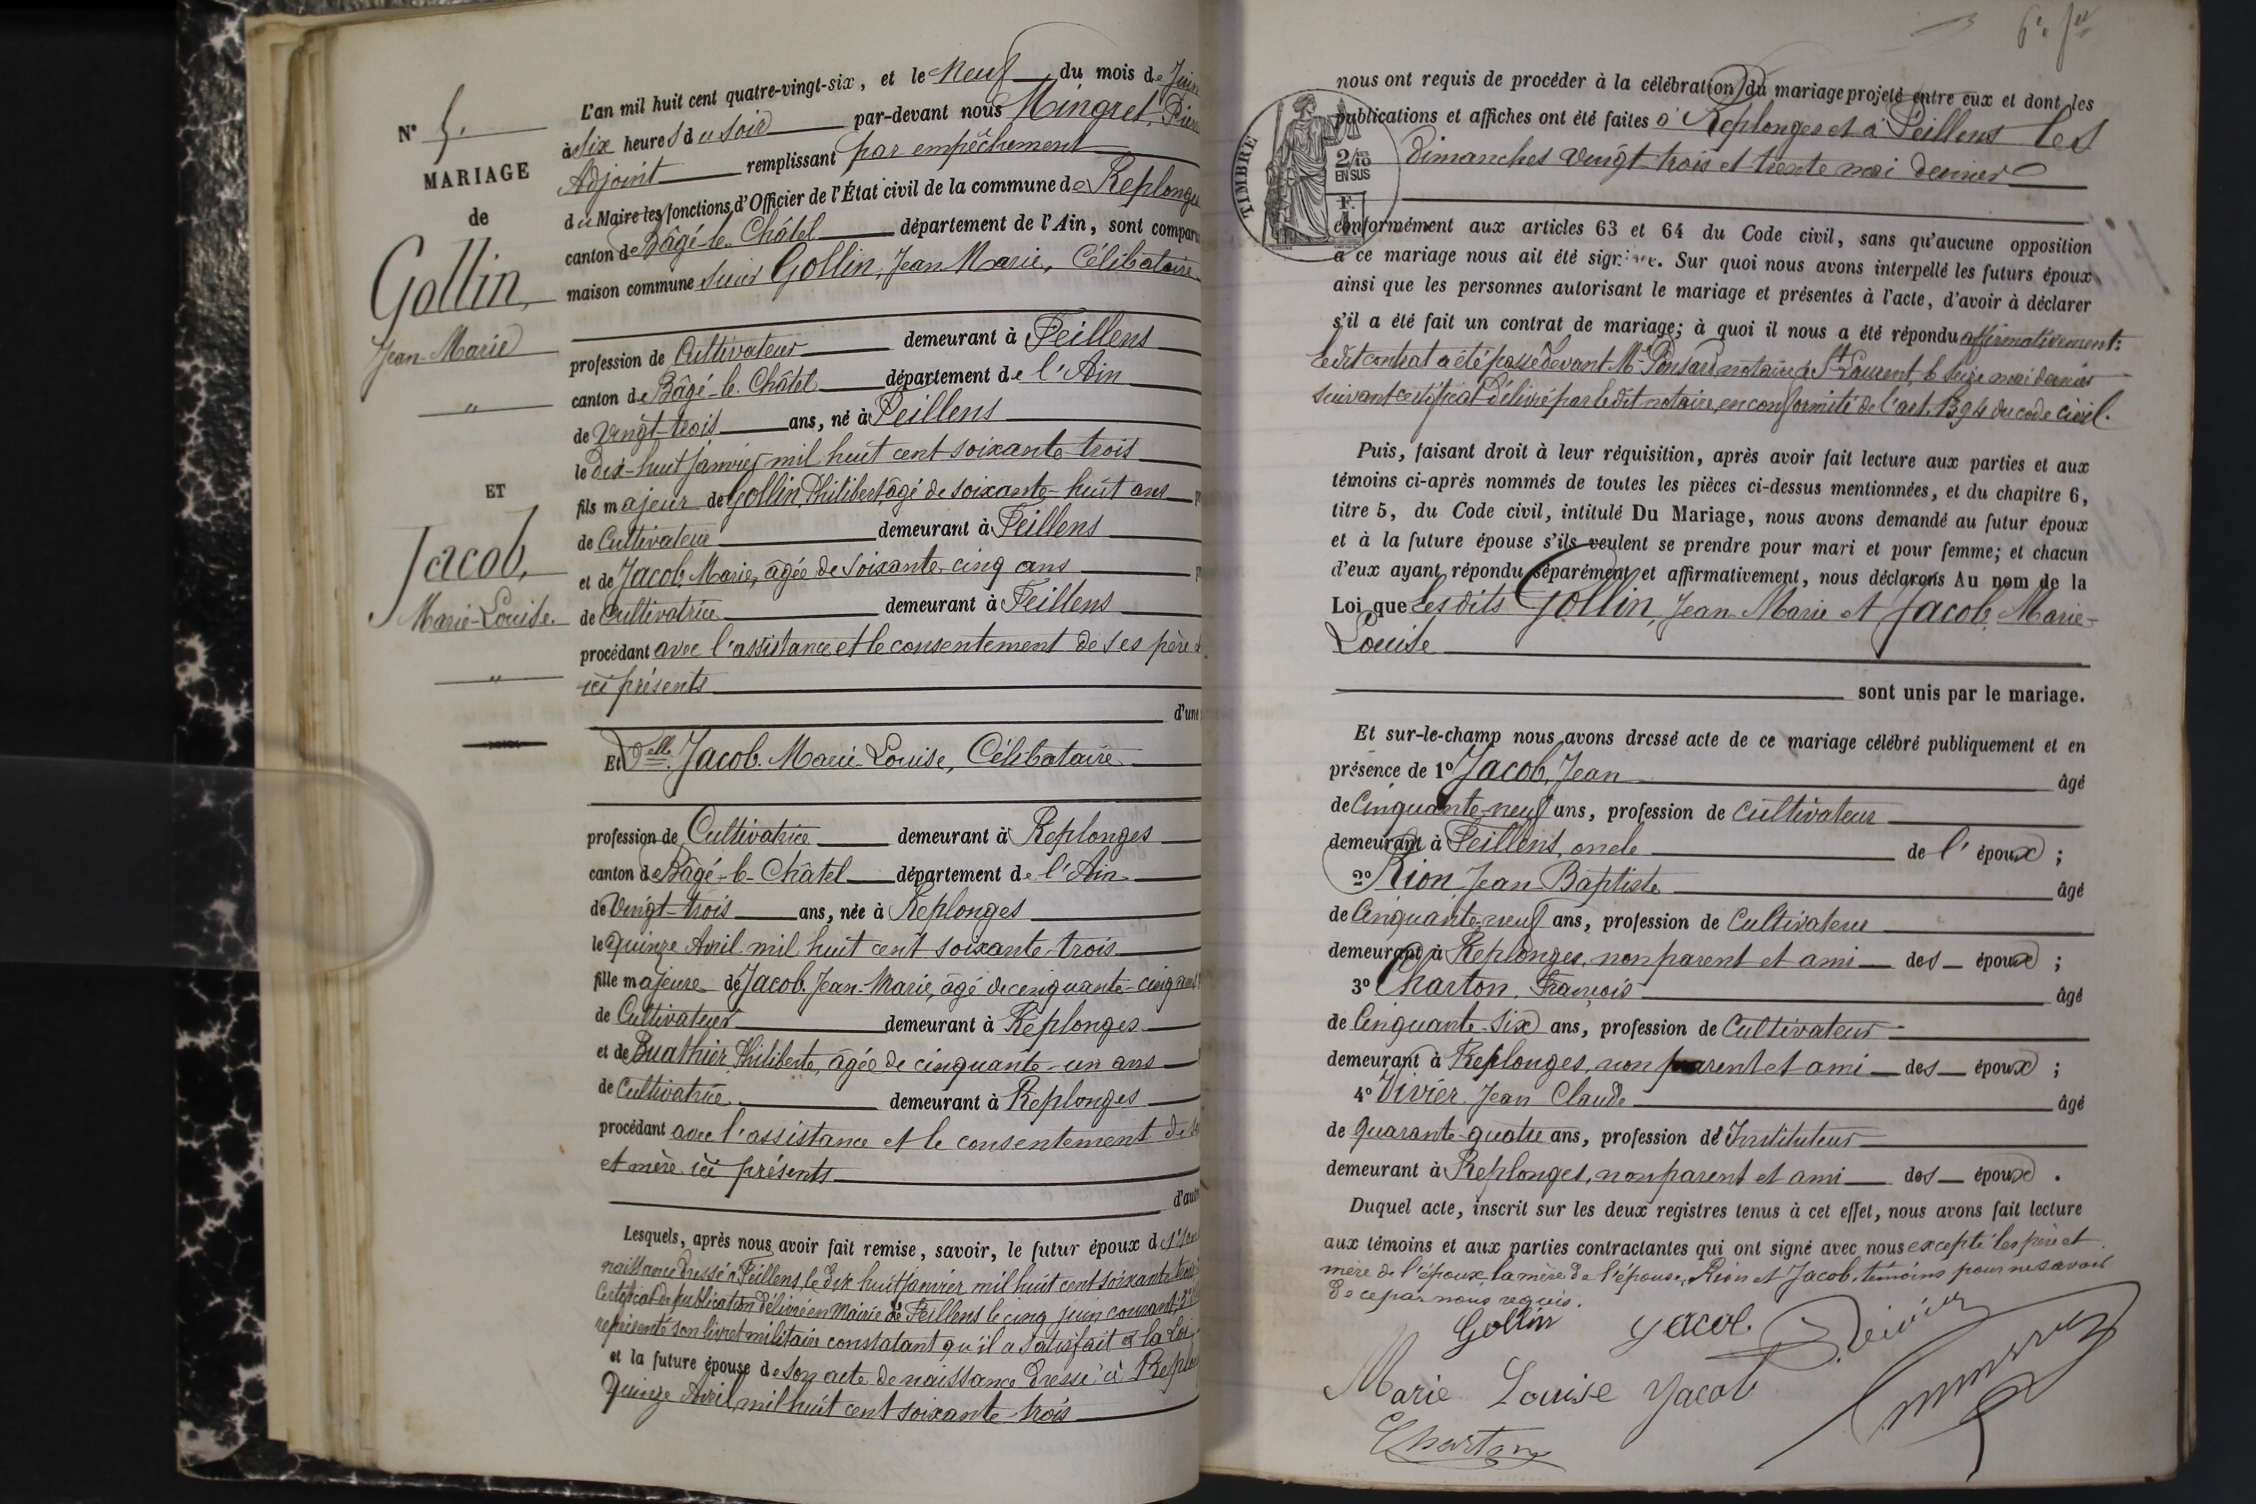 N° 5.
MARIAGE
de
Gollin,
Jean-Marie
"
ET
Jacob,
Marie-Louise.
"
L'an mil huit cent quatre-vingt-six, et le neuf du mois de Juin
à six heures du soir par-devant nous Mingret, Pierre
Adjoint remplissant par empêchement
du Maire les fonctions d'Officier de l'État civil de la commune de Replonges
canton de Bâgé-le-Châtel département de l'Ain, sont comparu
maison commune sieur Gollin, Jean Marie, Célibataire
profession de Cultivateur demeurant à Feillens
canton de Bâgé-le-Châtel département de l'Ain
de vingt-trois ans, né à Feillens
le dix-huit janvier mil huit cent soixante-trois
fils majeur de Gollin, Philibert, âgé de soixante-huit ans
de Cultivateur demeurant à Feillens
et de Jacob Marie, âgée de soixante-cinq ans
de Cultivatrice demeurant à Feillens
procédant avec l'assistance et le consentement de ses père et
ici présents
d'une
Et Delle Jacob Marie-Louise, Célibataire
profession de Cultivatrice demeurant à Replonges
canton de Bâgé-le-Châtel département de l'Ain
de vingt-trois ans, née à Replonges
le quinze Avril mil huit cent soixante-trois
fille majeure de Jacob Jean-Marie, âgé de cinquante-cinq ans
de Cultivateur demeurant à Replonges
et de Buathier Philiberte, âgée de cinquante-un ans
de Cultivatrice demeurant à Replonges
procédant avec l'assistance et le consentement de
et mère ici présents
d'autre
Lesquels, après nous avoir fait remise, savoir, le futur époux de
naissance dressé à Feillens, le dix huit janvier mil huit cent soixante trois
Certificat de publication délivré en Mairie de Feillens le cinq juin courant; 3°
représenté son livret militaire constatant qu'il a satisfait à la loi
et la future épouse de son acte de naissance dressé à Replonges
quinze Avril mil huit cent soixante-trois
6e fet
nous ont requis de procéder à la célébration du mariage projeté entre eux et dont les
publications et affiches ont été faites à Replonges et à Feillens les
dimanches vingt-trois et trente mai dernier
TIMBRE
2/10
EN SUS
F.
conformément aux articles 63 et 64 du Code civil, sans qu'aucune opposition
à ce mariage nous ait été signifiée. Sur quoi nous avons interpellé les futurs époux
ainsi que les personnes autorisant le mariage et présentes à l'acte, d'avoir à déclarer
s'il a été fait un contrat de mariage; à quoi il nous a été répondu affirmativement:
ledit contrat a été passé devant Me Ponsard notaire à St Laurent, le seize mai dernier
suivant certificat délivré par le dit notaire, en conformité de l'art. 1394 du code civil.
Puis, faisant droit à leur réquisition, après avoir fait lecture aux parties et aux
témoins ci-après nommés de toutes les pièces ci-dessus mentionnées, et du chapitre 6,
titre 5, du Code civil, intitulé Du Mariage, nous avons demandé au futur époux
et à la future épouse s'ils veulent se prendre pour mari et pour femme; et chacun
d'eux ayant répondu séparément et affirmativement, nous déclarons Au nom de la
Loi que lesdits Gollin, Jean-Marie et Jacob Marie-
Louise
sont unis par le mariage.
Et sur-le-champ nous avons dressé acte de ce mariage célébré publiquement et en
présence de 1° Jacob, Jean âgé
de Cinquante-neuf ans, profession de Cultivateur
demeurant à Feillens, oncle de l'époux ;
2° Rion Jean Baptiste âgé
de Cinquante-neuf ans, profession de Cultivateur
demeurant à Replonges, non parent et ami des époux ;
3° Charton, François âgé
de Cinquante-six ans, profession de Cultivateur
demeurant à Replonges, non parent et ami des époux ;
4° Vivier Jean Claude âgé
de quarante-quatre ans, profession d'Instituteur
demeurant à Replonges, non parent et ami des époux .
Duquel acte, inscrit sur les deux registres tenus à cet effet, nous avons fait lecture
aux témoins et aux parties contractantes qui ont signé avec nous excepté les père et
mère de l'époux, la mère de l'épouse, Rion et Jacob, témoins pour ne savoir
de ce par nous requis.
Gollin Jacob. Vivier
Marie Louise Jacob
Charton